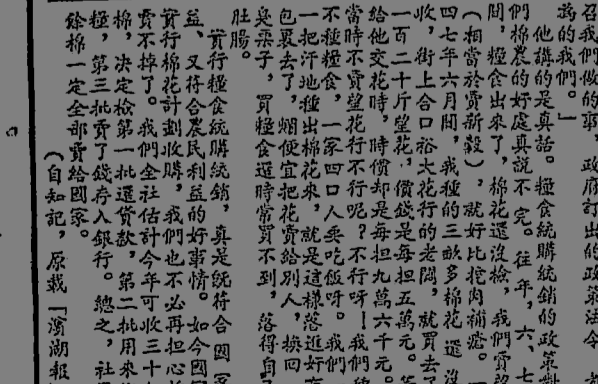 召我們做的事，政府訂出的政策法令，
蒍的我們。」
他講的是眞話。糧食統購統銷的政策對
們棉農的好處眞說不完。往年，六、七
間，糧食出來了，棉花還沒撿，我們賣
（相當於賣新穀），就好比挖肉補瘡。一
四七年六月間，我種的三畝多棉花還沒
收，街上合口裕大花行的老闆，就買去
一百二十斤望花，價錢是每担五萬元。
給他交花時，時價却是每担九萬六千元。
當時不賣望花行不行呢？不行呀！我們
不種糧食，一家四口人要吃飯呀。我們
一把汗地種出棉花來，就是這樣落進好
包裹去了，蝕便宜把花賣給別人，換回
是票子，買糧食還時常買不到，落得自
肚腸。
實行糧食統購統銷，眞是旣符合國家
益、又符合農民利益的好事情。如今國
實行棉花計劃收購，我們也不必再担心
賣不掉了。我們全社估計今年可收三十
棉，決定檢第一批還貸款，第二批用來
糧，第三批賣了錢存入銀行。總之，社
餘棉一定全部賣給國家。
（自知記，原載「濱湖報